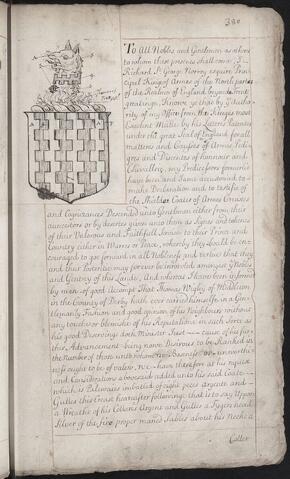 380
To All Nobles and Gentlemen
to whom these presents shall come
Richard St George Norroy
King of Armes of the North partes
of the Realme of England beyonde Trent
greetinge. Knowe ye that by
of my office from the Kinges most
Excelent Matie by his Letters Patents
under the great Seal of England for all
matters and Causses of Armes Pedi
grees and Discentes of honnour and
Chevallery, my Predecessors
have been and I ame accustomed to
make Declaration and to testifie of
the Shields or Coates of Armes Cressets
and Cognizances Descended unto Gentlemen either from their
auncestors or by desertes given unto them as Signes and tokens
of their Valerous and Faithfull Service to their Prince and
Country either in Warre or Peace, whereby they should be en
couraged to goe forward in all Nobleness and vertues that they
and their Posterities may for ever be renowned amongst Nobles
and Gentry of this Lande, And whereas I have been informed
by men of good Accompt That Thomas Wigley of Middleton
in the County of Derby hath ever carried himselfe in a Gen
tlemanly Fashion and good opinion of his Neighbours without
any touche or blemishe of his Reputation in such sorte as
his good Deservinges doth cause of his fur
ther Advancement being nowe Desirous to be Ranked in
the Number of them unto whome noe Basenesse or unworthi
ness ought to be of valew. We have therefore at his request
and Considerations abovesaid added unto his said Coate
which is Palewaies imbatled of eight peeces argente and
Gulles this Creast heareafter followinge that is to say Uppon
a Wreathe of his Collers Argent and Gulles a Tygers head
Silver of the proper maned Sables about his Necke a
Coller